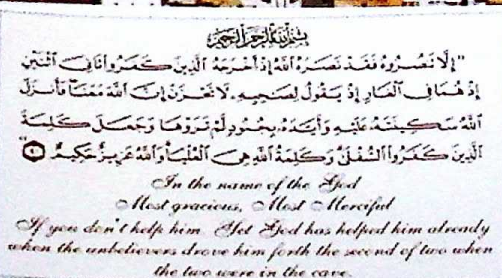 بسم الله الرحمن الرحيم
"إلا تنصروه فقد نصره الله إذ أخرجه الذين كفروا ثاني اثنين
إذ هما في الغار إذ يقول لصاحبه لا تحزن إن الله معنا فأنزل
الله سكينته عليه وأيده بجنود لم تروها وجعل كلمة
الذين كفروا السفلى وكلمة الله هي العليا والله عزيز حكيم"
In the name of the God
Most gracious, Most Merciful
If you don't help him Yet God has helped him already
when the unbelievers drove him forth the second of two when
the two were in the cave.